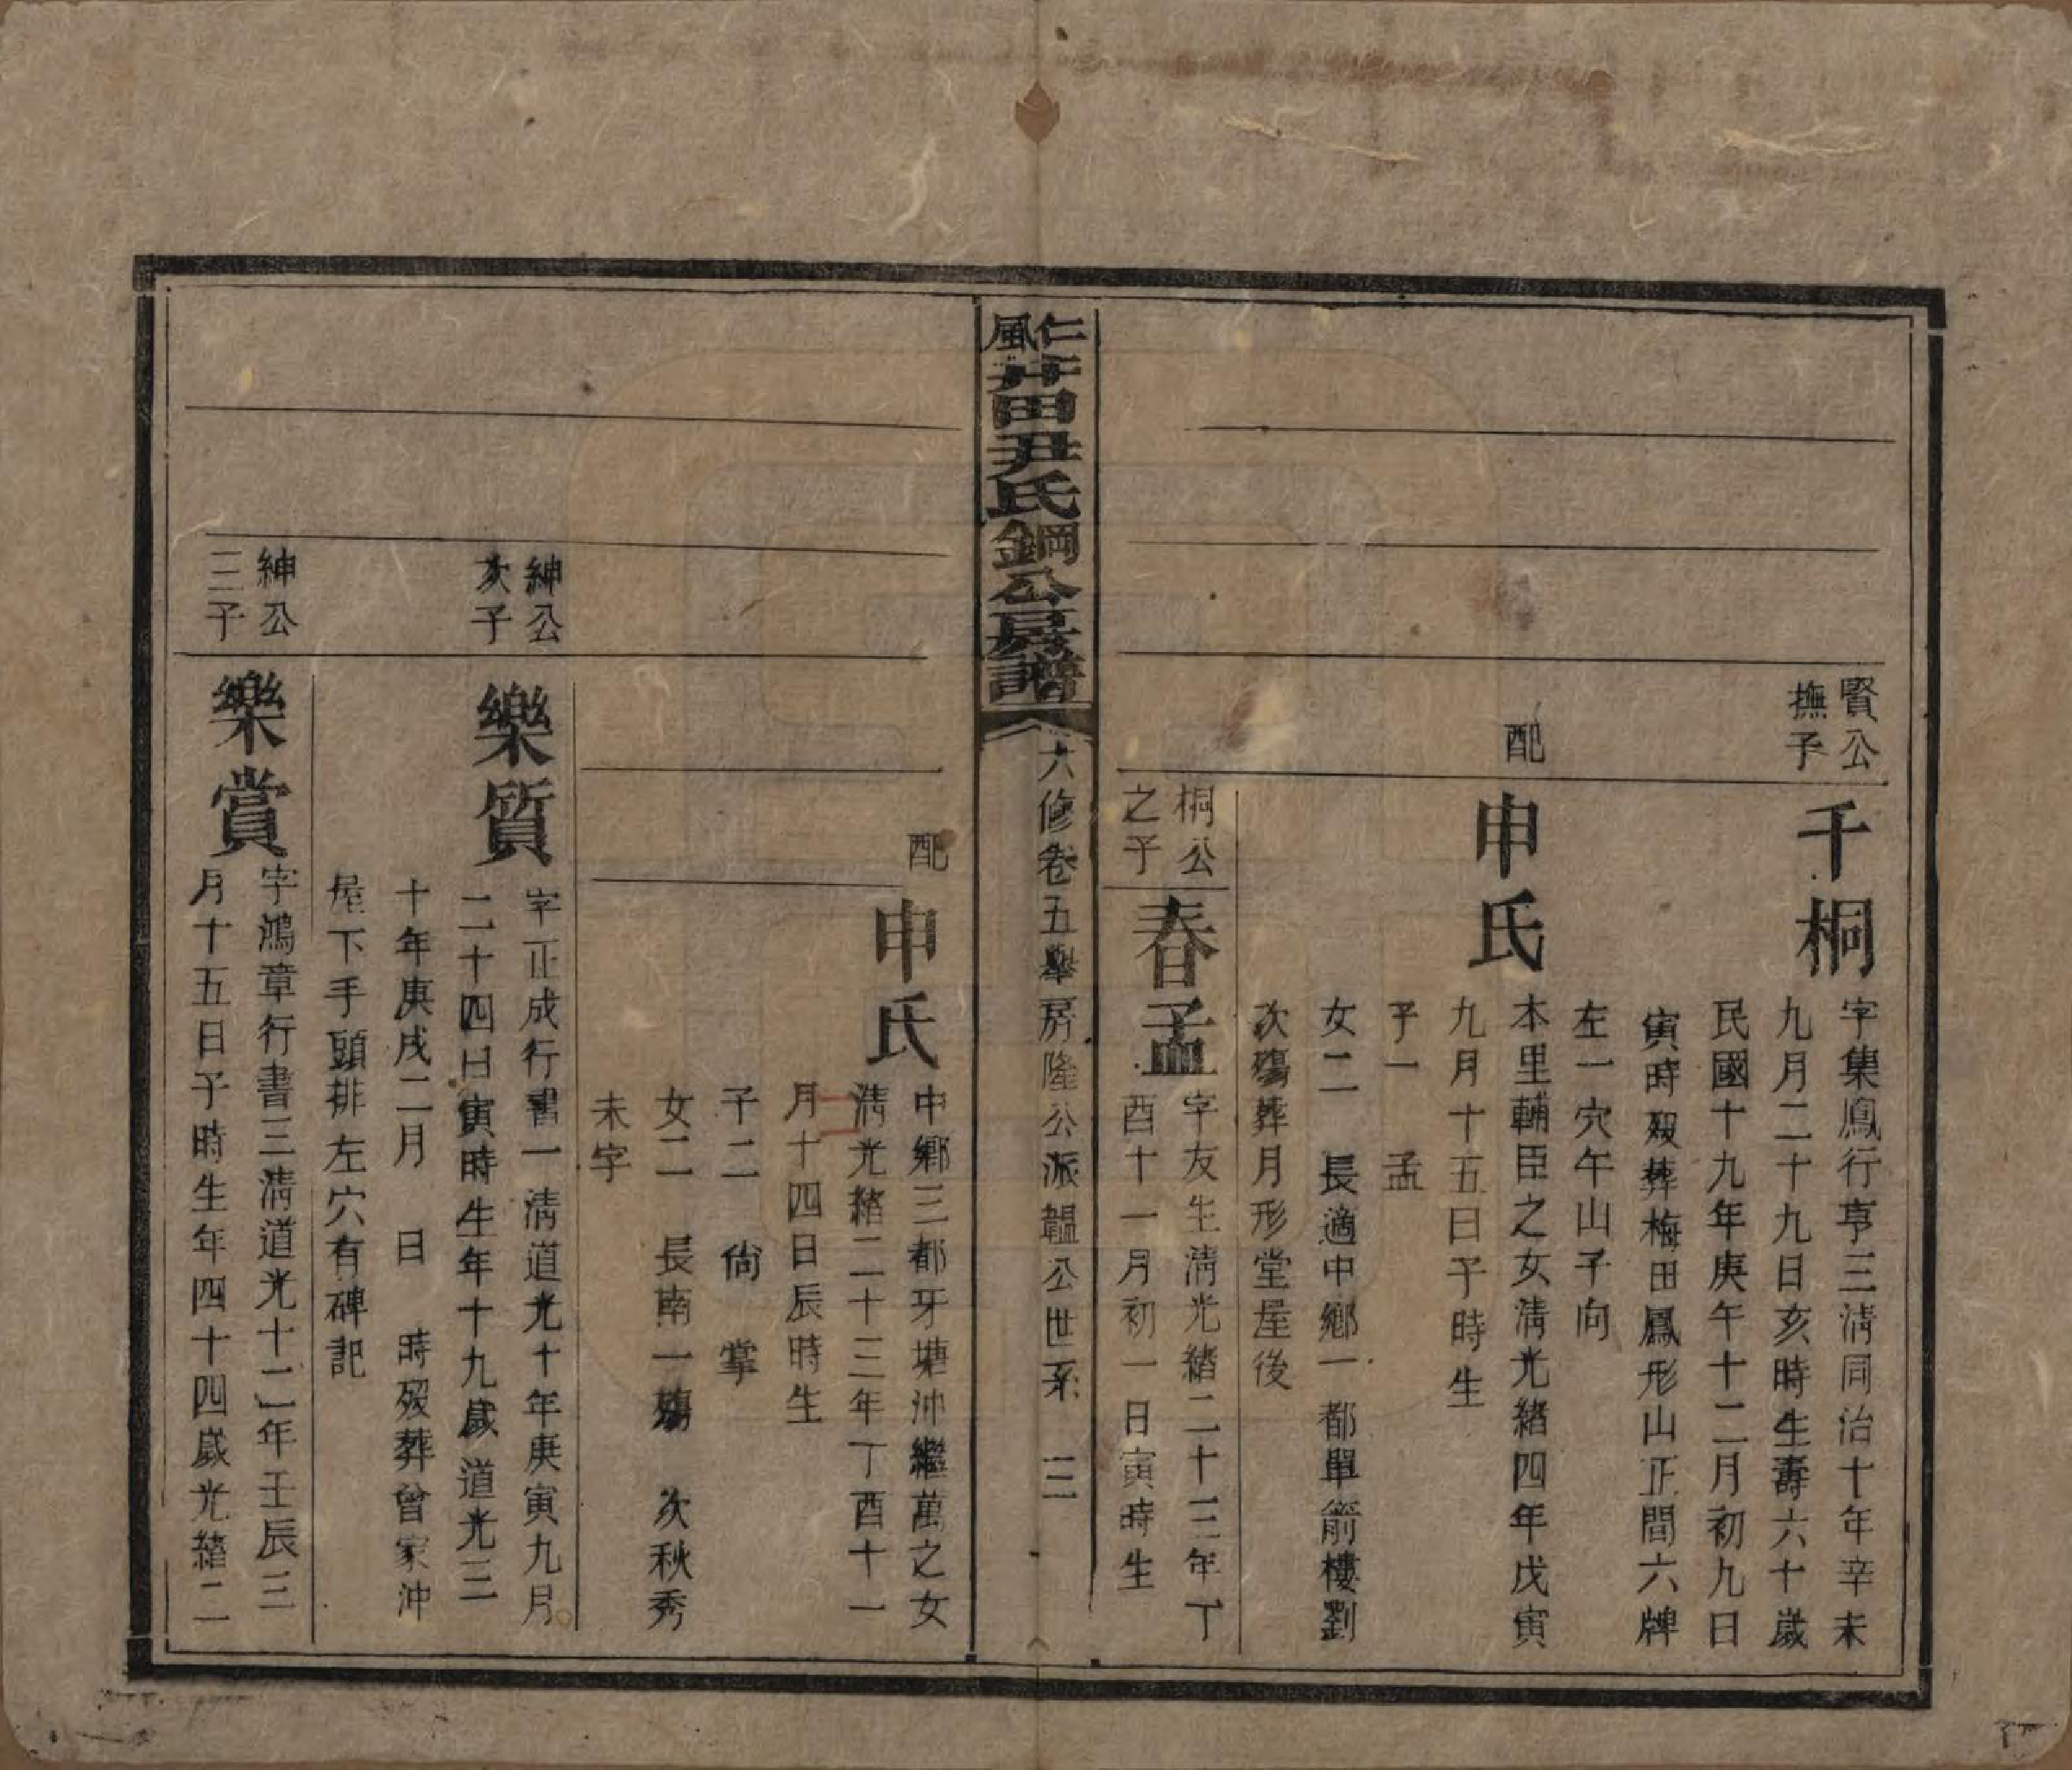 賢公
撫子
千桐
字集鳳行亨三清同治十年辛未
九月二十九日亥時生壽六十歲
民國十九年庚午十二月初九日
寅時歿葬梅田鳳形山正間六牌
左一穴午山子向
配
申氏
本里輔臣之女清光緒四年戊寅
九月十五日子時生
子一 孟
女二 長適中鄉一都單箭樓劉
次殤葬月形堂屋後
桐公
之子
春孟
字友生清光緒二十三年丁
酉十一月初一日寅時生
仁風井田尹氏鋼公房譜
六修卷五舉房隆公派韞公世系 三
配
申氏
中鄉三都牙塘沖繼萬之女
清光緒二十三年丁酉十一
月十四日辰時生
子二 尙 掌
女二 長南一殤 次秋秀
未字
紳公
次子
樂質
字正成行書一清道光十年庚寅九月
二十四日寅時生年十九歲道光三
十年庚戌二月 日 時歿葬曾家沖
屋下手頭排左穴有碑記
紳公
三子
樂賞
字鴻章行書三清道光十二年壬辰三
月十五日子時生年四十四歲光緒二